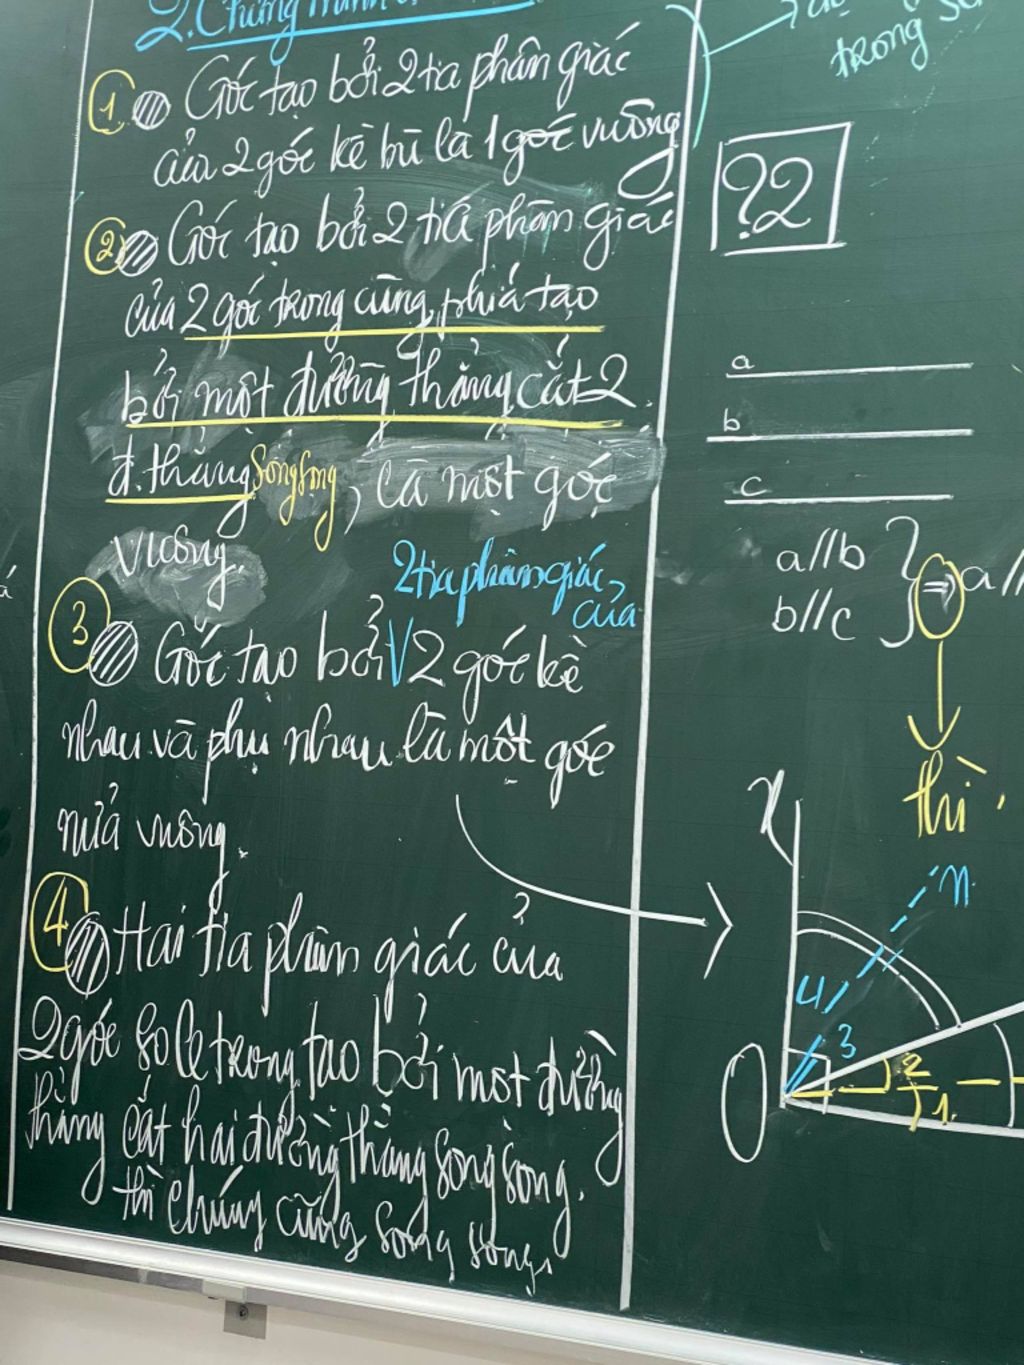 2. Chứng minh
① Góc tạo bởi 2 tia phân giác
của 2 góc kề bù là 1 góc vuông
② Góc tạo bởi 2 tia phân giác
của 2 góc trong cùng phía tạo
bởi một đường thẳng cắt 2
đ.thẳng song song, là một góc
vuông.
2 tia phân giác
của
③ Góc tạo bởi V 2 góc kề
nhau và phụ nhau là một góc
nửa vuông.
④ Hai tia phân giác của
2 góc so le trong tạo bởi một đường
thẳng cắt hai đường thẳng song song.
thì chúng cũng song song.
trong
?2
a
b
c
a//b
b//c
} => a//
thì
x
n
4
3
2
1
O